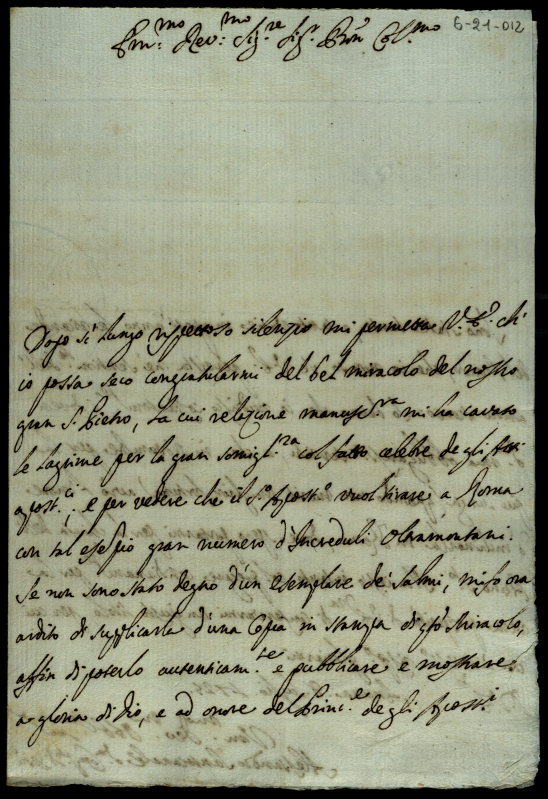 6-21-012
Em:mo Rev:mo Sig.re Sig.r Pron Col.mo
Dopo sì lungo rispettoso silenzio mi permetta V.E. ch'
io possa seco congratularmi del bel miracolo del nostro
gran S. Pietro, la cui relazione manuscr.a mi ha cavato
le lagrime per la gran somigl.za col fatto celebre de gli Atti
apost.ci: e per vedere che il S.o Apost.o vuol tirare a Roma
con tal esempio gran numero d'Increduli Oltramontani.
Se non sono stato degno d'un esemplare de' Salmi, mi fo ora
ardito di supplicarla d'una Copia in stampa di q.to Miracolo,
affin di poterlo autenticam.te e pubblicare e mostrare
a gloria di Dio, e ad onore del Princ.e degli Apost.i